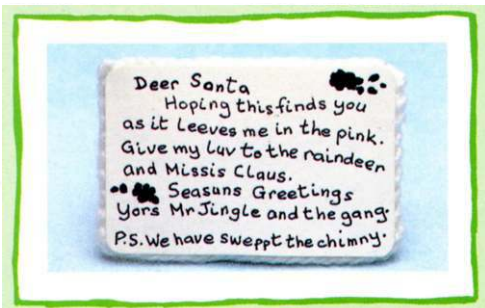 Deer Santa
Hoping this finds you
as it leeves me in the pink.
Give my luv to the raindeer
and Missis Claus.
Seasuns Greetings
Yors Mr Jingle and the gang.
P.S. We have sweppt the chimny.